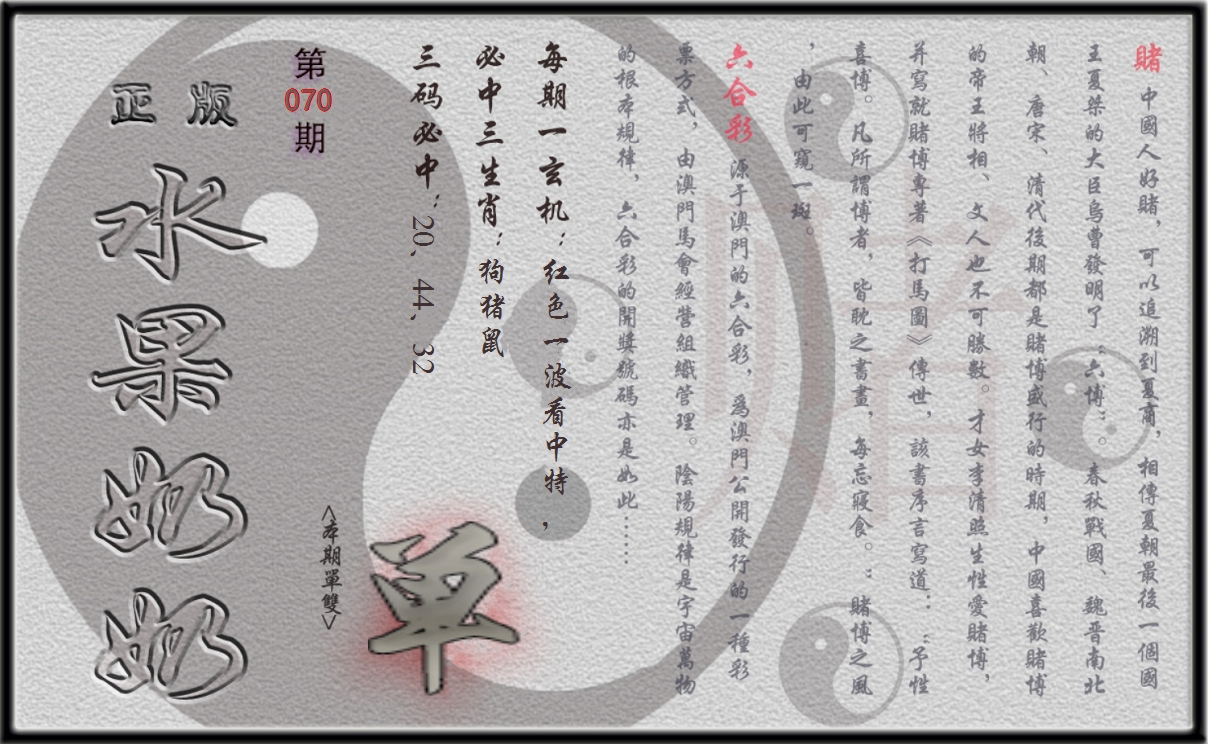 賭 中國人好賭，可以追溯到夏商，相傳夏朝最後一個國
王夏桀的大臣烏曹發明了：六博：。春秋戰國、魏晉南北
朝、唐宋、清代後期都是賭博盛行的時期，中國喜歡賭博
的帝王將相、文人也不可勝數。才女李清照生性愛賭博，
并寫就賭博專著《打馬圖》傳世，該書序言寫道：：予性
喜博。凡所謂博者，皆耽之書畫，每忘寢食。：賭博之風
，由此可窺一斑。
六合彩 源于澳門的六合彩，為澳門公開發行的一種彩
票方式，由澳門馬會經營組織管理。陰陽規律是宇宙萬物
的根本規律，六合彩的開獎號碼亦是如此……
每期一玄机：红色一波看中特，
必中三生肖：狗猪鼠
三码必中：20、44、32
第
070
期
<本期單雙>
單
正版
水果奶奶
赌